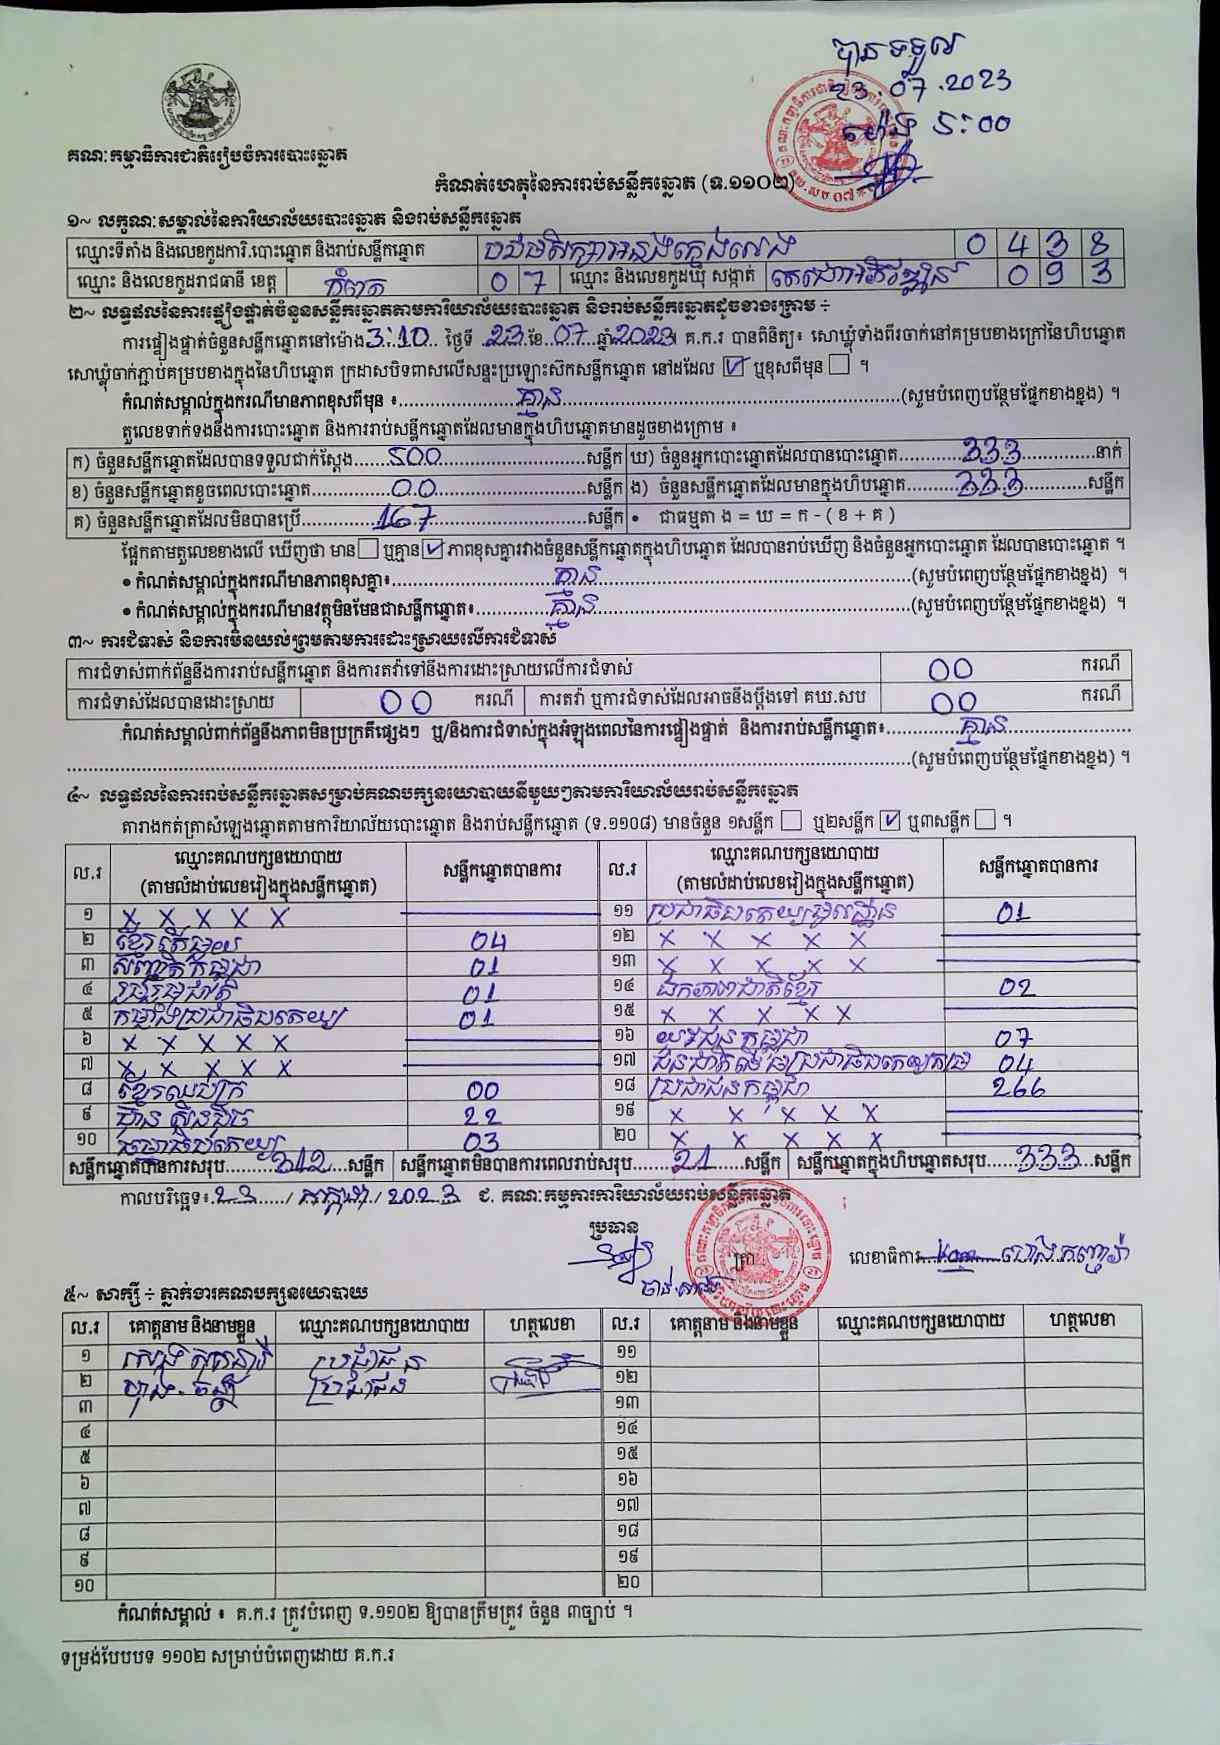 បានទទួល
23.07.2023
ម៉ោង 5:00
គណៈកម្មាធិការជាតិរៀបចំការបោះឆ្នោត
កំណត់ហេតុនៃការរាប់សន្លឹកឆ្នោត (ទ.១១០២)
១~ លក្ខណៈសម្គាល់នៃការិយាល័យបោះឆ្នោត និងរាប់សន្លឹកឆ្នោត
ឈ្មោះទីតាំង និងលេខកូដការិ.បោះឆ្នោត និងរាប់សន្លឹកឆ្នោត 0 4 3 8
ឈ្មោះ និងលេខកូដរាជធានី ខេត្ត កំពត 0 7 ឈ្មោះ និងលេខកូដឃុំ សង្កាត់ 0 9 3
២~ លទ្ធផលនៃការផ្ទៀងផ្ទាត់ចំនួនសន្លឹកឆ្នោតតាមការិយាល័យបោះឆ្នោត និងរាប់សន្លឹកឆ្នោតដូចខាងក្រោម ÷
ការផ្ទៀងផ្ទាត់ចំនួនសន្លឹកឆ្នោតនៅម៉ោង 3:10 ថ្ងៃទី 23 ខែ 07 ឆ្នាំ 2023 គ.ក.រ បានពិនិត្យ៖ សោឃ្លុំទាំងពីរចាក់នៅគម្របខាងក្រៅនៃហិបឆ្នោត
សោឃ្លុំចាក់ភ្ជាប់គម្របខាងក្នុងនៃហិបឆ្នោត ក្រដាសបិទពាសលើសន្ទះប្រឡោះស៊កសន្លឹកឆ្នោត នៅដដែល ☑ ឬខុសពីមុន ☐ ។
កំណត់សម្គាល់ក្នុងករណីមានភាពខុសពីមុន ៖ គ្មាន (សូមបំពេញបន្ថែមផ្នែកខាងខ្នង) ។
តួលេខទាក់ទងនឹងការបោះឆ្នោត និងការរាប់សន្លឹកឆ្នោតដែលមានក្នុងហិបឆ្នោតមានដូចខាងក្រោម ៖
ក) ចំនួនសន្លឹកឆ្នោតដែលបានទទួលជាក់ស្តែង 500 សន្លឹក ឃ) ចំនួនអ្នកបោះឆ្នោតដែលបានបោះឆ្នោត 333 នាក់
ខ) ចំនួនសន្លឹកឆ្នោតខូចពេលបោះឆ្នោត 00 សន្លឹក ង) ចំនួនសន្លឹកឆ្នោតដែលមានក្នុងហិបឆ្នោត 333 សន្លឹក
គ) ចំនួនសន្លឹកឆ្នោតដែលមិនបានប្រើ 167 សន្លឹក • ជាធម្មតា ង = ឃ = ក - ( ខ + គ )
ផ្អែកតាមតួលេខខាងលើ ឃើញថា មាន ☐ ឬគ្មាន ☑ ភាពខុសគ្នារវាងចំនួនសន្លឹកឆ្នោតក្នុងហិបឆ្នោត ដែលបានរាប់ឃើញ និងចំនួនអ្នកបោះឆ្នោត ដែលបានបោះឆ្នោត ។
• កំណត់សម្គាល់ក្នុងករណីមានភាពខុសគ្នា៖ គ្មាន (សូមបំពេញបន្ថែមផ្នែកខាងខ្នង) ។
• កំណត់សម្គាល់ក្នុងករណីមានវត្ថុមិនមែនជាសន្លឹកឆ្នោត៖ គ្មាន (សូមបំពេញបន្ថែមផ្នែកខាងខ្នង) ។
៣~ ការជំទាស់ និងការមិនយល់ព្រមតាមការដោះស្រាយលើការជំទាស់
ការជំទាស់ពាក់ព័ន្ធនឹងការរាប់សន្លឹកឆ្នោត និងការតវ៉ាទៅនឹងការដោះស្រាយលើការជំទាស់ 00 ករណី
ការជំទាស់ដែលបានដោះស្រាយ 00 ករណី ការតវ៉ា ឬការជំទាស់ដែលអាចនឹងប្តឹងទៅ គឃ.សប 00 ករណី
កំណត់សម្គាល់ពាក់ព័ន្ធនឹងភាពមិនប្រក្រតីផ្សេងៗ ឬ/និងការជំទាស់ក្នុងអំឡុងពេលនៃការផ្ទៀងផ្ទាត់ និងការរាប់សន្លឹកឆ្នោត៖ គ្មាន
(សូមបំពេញបន្ថែមផ្នែកខាងខ្នង) ។
៤~ លទ្ធផលនៃការរាប់សន្លឹកឆ្នោតសម្រាប់គណបក្សនយោបាយនីមួយៗតាមការិយាល័យរាប់សន្លឹកឆ្នោត
តារាងកត់ត្រាសំឡេងឆ្នោតតាមការិយាល័យបោះឆ្នោត និងរាប់សន្លឹកឆ្នោត (ទ.១១០៨) មានចំនួន ១សន្លឹក ☐ ឬ២សន្លឹក ☑ ឬ៣សន្លឹក ☐ ។
ល.រ ឈ្មោះគណបក្សនយោបាយ (តាមលំដាប់លេខរៀងក្នុងសន្លឹកឆ្នោត) សន្លឹកឆ្នោតបានការ ល.រ ឈ្មោះគណបក្សនយោបាយ (តាមលំដាប់លេខរៀងក្នុងសន្លឹកឆ្នោត) សន្លឹកឆ្នោតបានការ
១ X X X X X ១១ ប្រជាធិបតេយ្យមូលដ្ឋាន 01
២ ខ្មែរតែមួយ 04 ១២ X X X X X
៣ សញ្ជាតិកម្ពុជា 01 ១៣ X X X X X
៤ រួបរួមជាតិ 01 ១៤ ឯកភាពជាតិខ្មែរ 02
៥ កម្លាំងប្រជាធិបតេយ្យ 01 ១៥ X X X X X
៦ X X X X X ១៦ យុវជនកម្ពុជា 07
៧ X X X X X ១៧ ជនជាតិដើមប្រជាធិបតេយ្យកម្ពុជា 04
៨ ខ្មែរឈប់ក្រ 00 ១៨ ប្រជាជនកម្ពុជា 266
៩ ហ្វ៊ុនស៊ិនប៉ិច 22 ១៩ X X X X X
១០ ធម្មាធិបតេយ្យ 03 ២០ X X X X X
សន្លឹកឆ្នោតបានការសរុប 312 សន្លឹក សន្លឹកឆ្នោតមិនបានការពេលរាប់សរុប 21 សន្លឹក សន្លឹកឆ្នោតក្នុងហិបឆ្នោតសរុប 333 សន្លឹក
កាលបរិច្ឆេទ៖ 23 / កក្កដា / 2023 ជ. គណៈកម្មការការិយាល័យរាប់សន្លឹកឆ្នោត
ប្រធាន
ត្រា លេខាធិការ
៥~ សាក្សី ÷ ភ្នាក់ងារគណបក្សនយោបាយ
ល.រ គោត្តនាម និងនាមខ្លួន ឈ្មោះគណបក្សនយោបាយ ហត្ថលេខា ល.រ គោត្តនាម និងនាមខ្លួន ឈ្មោះគណបក្សនយោបាយ ហត្ថលេខា
១ ប្រជាជន ១១
២ ប្រជាជន ១២
៣ ១៣
៤ ១៤
៥ ១៥
៦ ១៦
៧ ១៧
៨ ១៨
៩ ១៩
១០ ២០
កំណត់សម្គាល់ ៖ គ.ក.រ ត្រូវបំពេញ ទ.១១០២ ឱ្យបានត្រឹមត្រូវ ចំនួន ៣ច្បាប់ ។
ទម្រង់បែបបទ ១១០២ សម្រាប់បំពេញដោយ គ.ក.រ